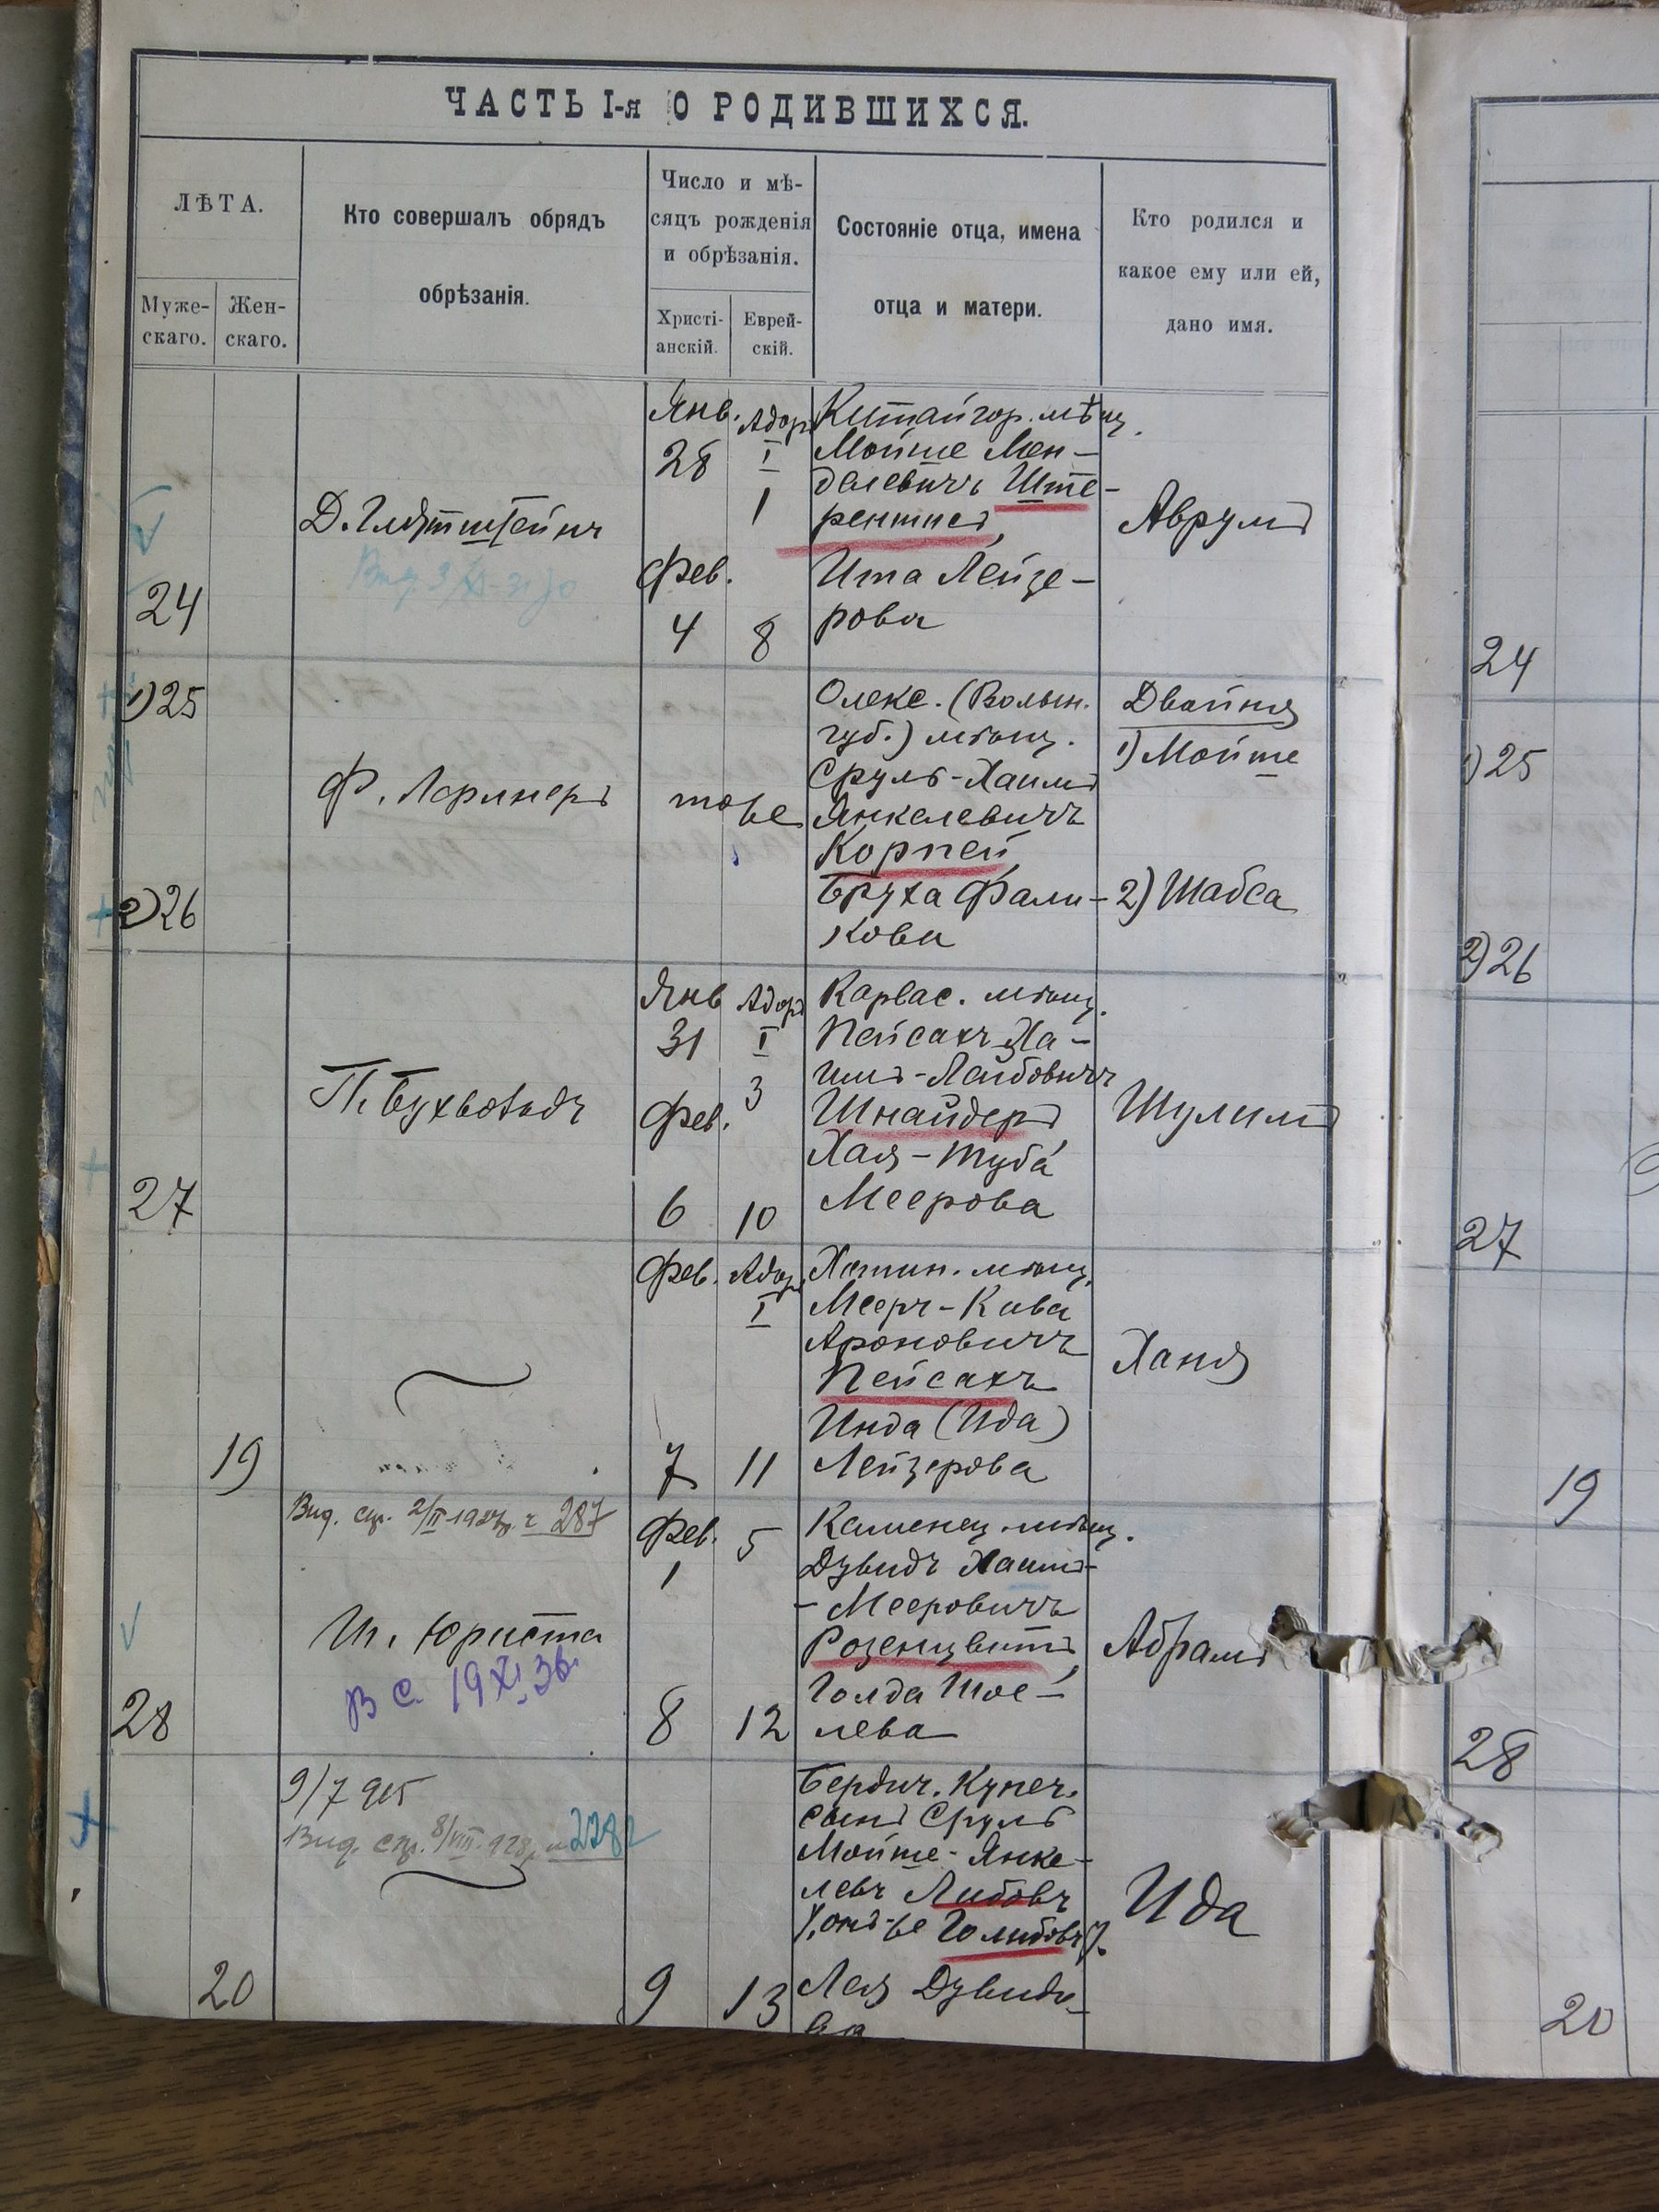 ЧАСТЬ I-я О РОДИВШИХСЯ.
ЛѢТА.
Муже-
скаго.
Жен-
скаго.
Кто совершалъ обрядъ
обрѣзанія.
Число и мѣ-
сяцъ рожденія
и обрѣзанія.
Христі-
анскій.
Еврей-
скій.
Состояніе отца, имена
отца и матери.
Кто родился и
какое ему или ей,
дано имя.
24
Янв. Адаръ
28 I
1
Фев.
4 8
Китайгор. мѣщ.
Мойше Мен-
делевичъ Ште-
рентисъ,
Ита Лейзе-
рова
Аврумъ
24
1) 25
2) 26
Ф. Лернеръ
тоже
Олекс. (Волын.
губ.) мѣщ.
Сруль-Хаимъ
Янкелевичъ
Корпей,
Бруха Фали-
кова
Двойня
1) Мойше
2) Шабса
1) 25
2) 26
27
П. Бухвольдъ
Янв Адаръ
31 I
3
Фев.
6 10
Карвас. мѣщ.
Пейсахъ Ха-
имъ-Лейбовичъ
Шнайдеръ,
Хая-Туба
Меерова
Шулимъ
27
19
Фев. Адаръ
I
7 11
Хотин. мѣщ.
Мееръ-Кива
Ароновичъ
Пейсахъ
Инда (Ида)
Лейзерова
Ханя
19
28
287
И. Юриста
В с. 19 XI 36
Фев. 5
1
8 12
Каменец. мѣщ.
Дувидъ Хаимъ-
- Мееровичъ
Розенцвитъ,
Голда Шое-
лева
Абрамъ
28
20
9/7 915
2282
9 13
Бердич. Купеч.
сынъ Сруль
Мойше-Янке-
левъ Либовъ
(онъ-же Голибовъ).
Лея Дувидо-
ва
Ида
20